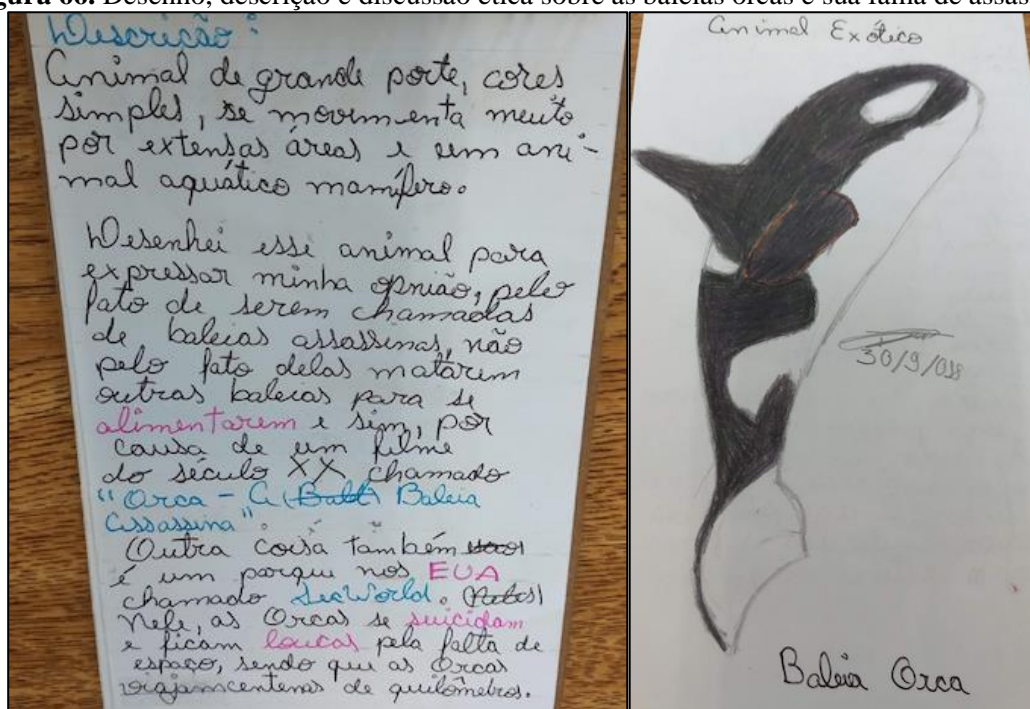 gura 66. Desenho, descrição e discussão ética sobre as baleias orcas e sua fama de assas
Descrição:
Animal de grande porte, cores
simples, se movimenta muito
por extensas áreas e um ani-
mal aquático mamífero.
Desenhei esse animal para
expressar minha opnião, pelo
fato de serem chamadas
de baleias assassinas, não
pelo fato delas matarem
outras baleias para se
alimentarem e sim, por
causa de um filme
do século XX chamado
"Orca - A Baleia
Assassina".
Outra coisa também
é um parque nos EUA
chamado SeaWorld.
Nele, as Orcas se suicidam
e ficam loucas pela falta de
espaço, sendo que as Orcas
viajam centenas de quilômetros.
Animal Exótico
30/9/018
Baleia Orca